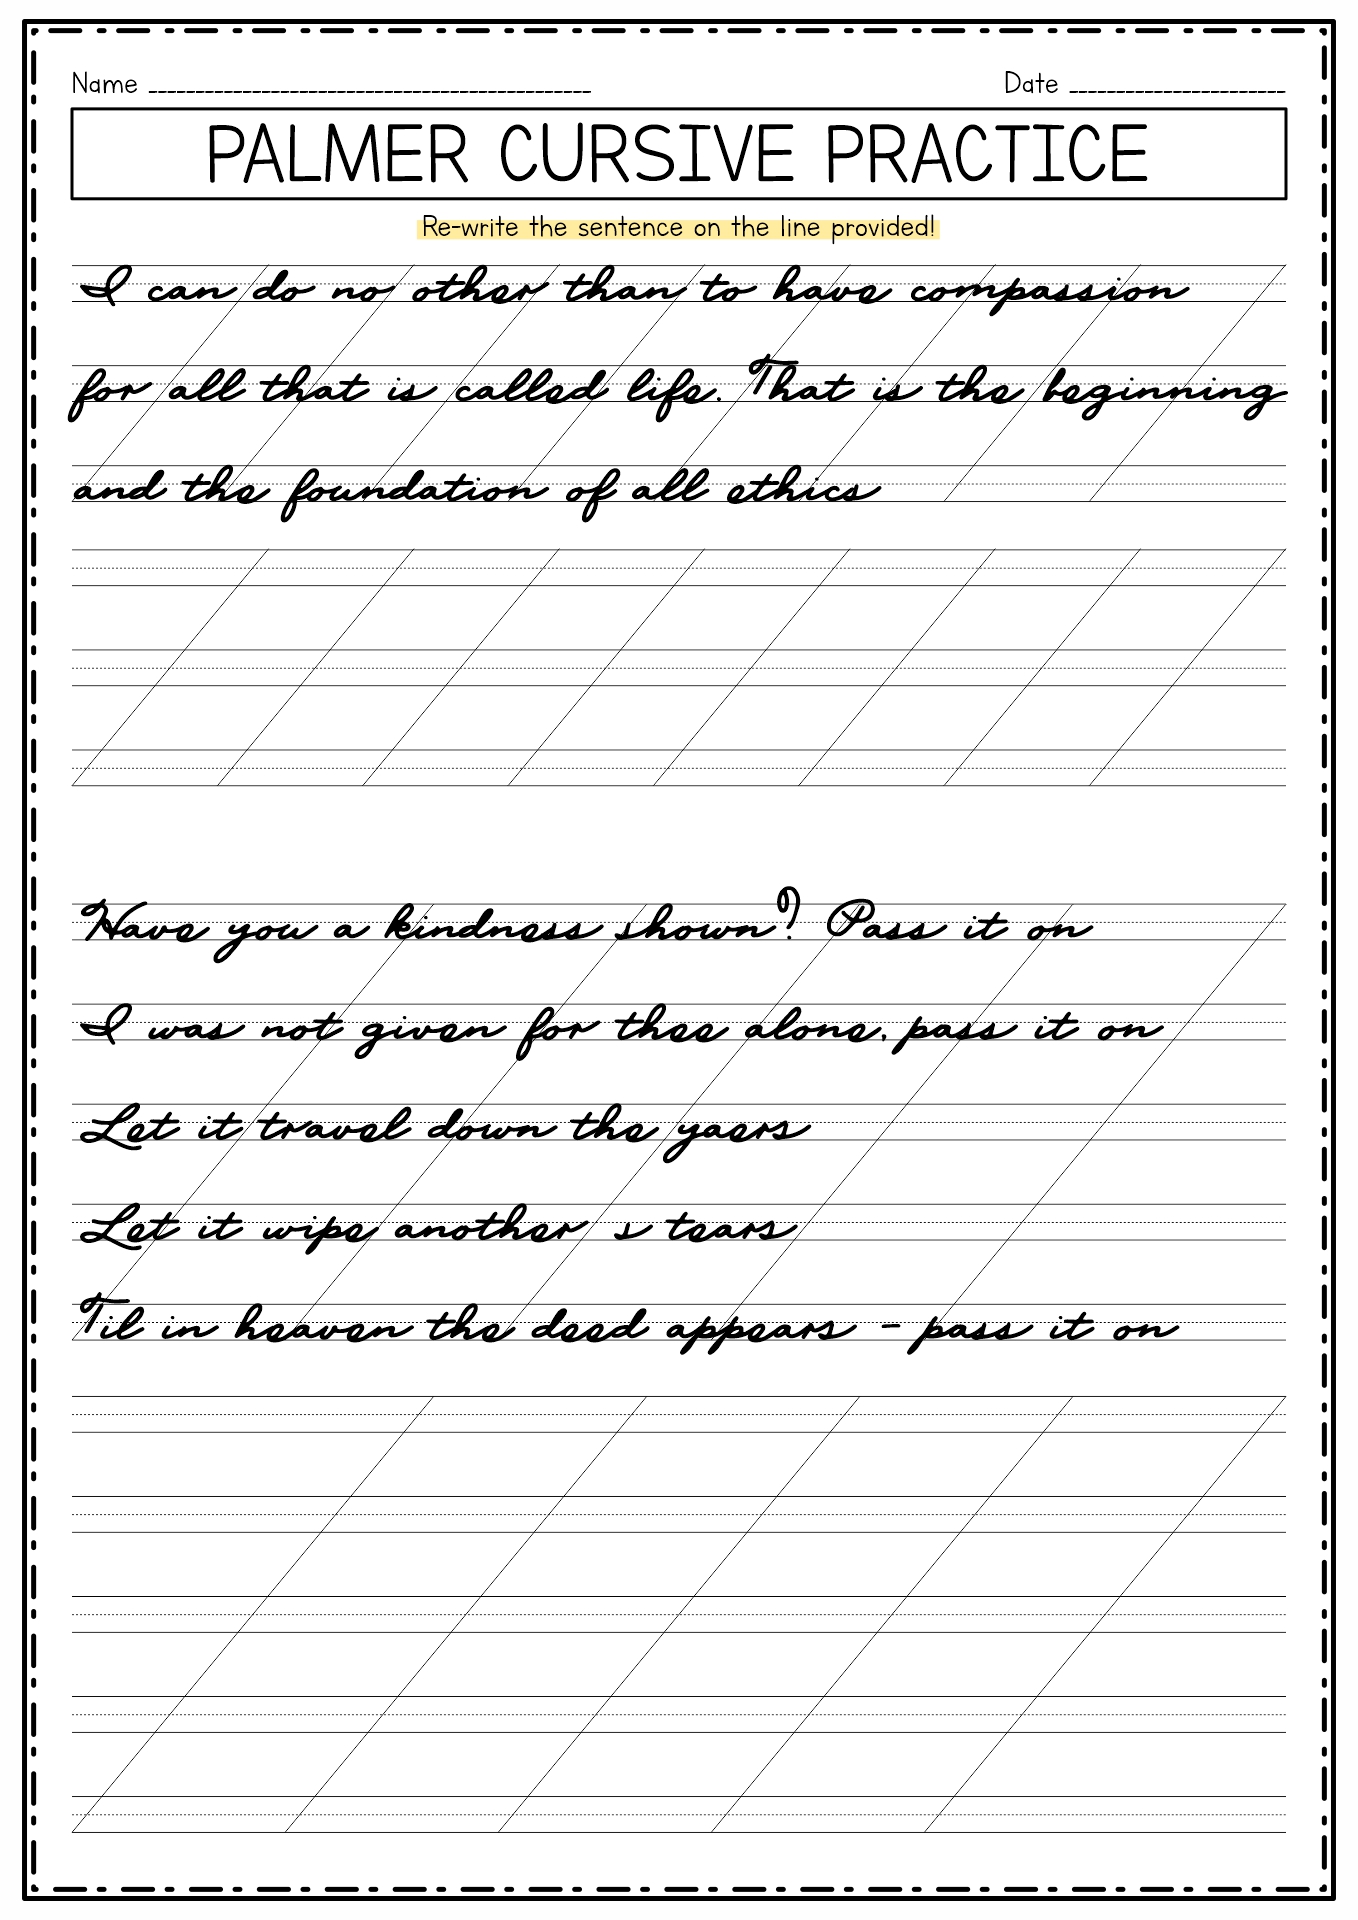 Name
Date
PALMER CURSIVE PRACTICE
Re-write the sentence on the line provided!
I can do no other than to have compassion
for all that is called life. That is the beginning
and the foundation of all ethics
Have you a kindness shown? Pass it on
I was not given for thee alone, pass it on
Let it travel down the yaers
Let it wipe another s tears
Til in heaven the deed appears - pass it on